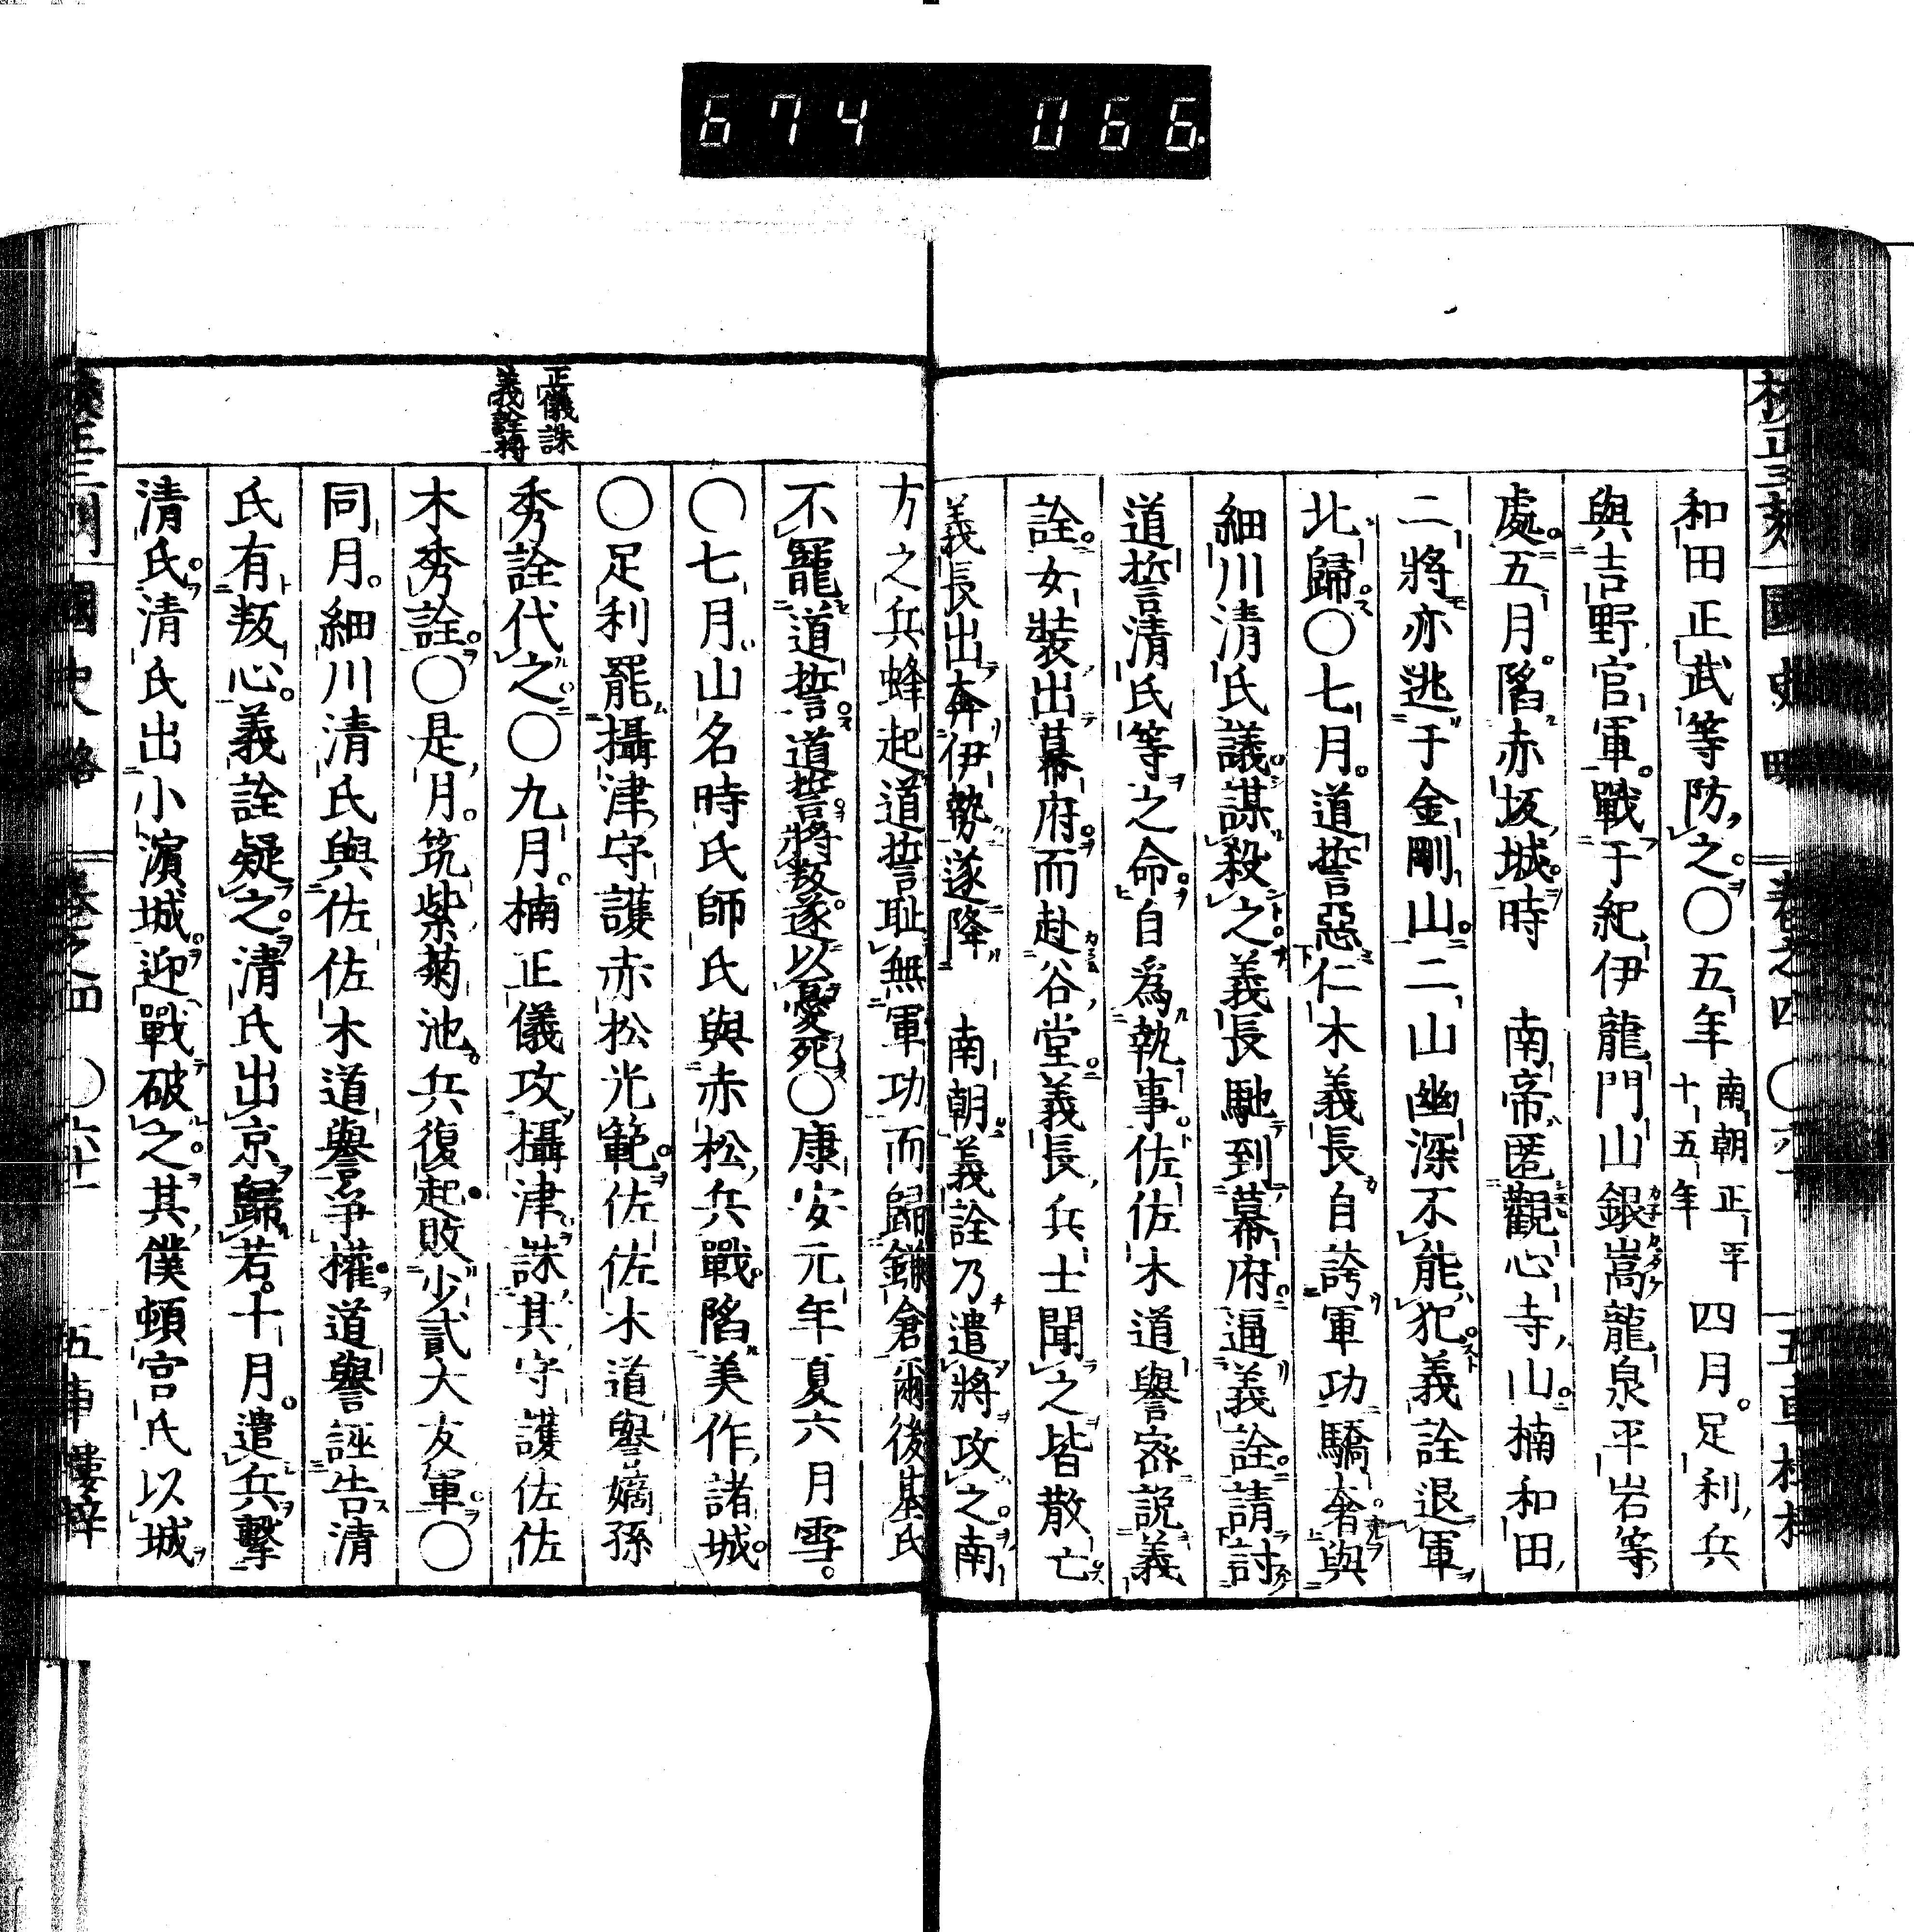 674 066
和田正武等防之〇五年南朝正平十五年四月足利兵
與吉野官軍戰于紀伊龍門山銀嵩龍泉平岩等
處五月陷赤坂城時 南帝匿觀心寺山楠和田
二將亦逃于金剛山二山幽深不能犯義詮退軍
北歸〇七月道誓惡仁木義長自誇軍功驕奢與
細川清氏議謀殺之義長馳到幕府逼義詮請討
道誓清氏等之命自爲執事佐佐木道譽密説義
詮女裝出幕府而赴谷堂義長兵士聞之皆散亡
義長出奔伊勢遂降 南朝義詮乃遣將攻之南
方之兵蜂起道誓耻無軍功而歸鎌倉爾後基氏
不寵道誓道誓將叛遂以憂死〇康安元年夏六月雪
〇七月山名時氏師氏與赤松兵戰陷美作諸城
〇足利罷攝津守護赤松光範佐佐木道譽嫡孫
秀詮代之〇九月楠正儀攻攝津誅其守護佐佐
木秀詮〇是月筑紫菊池兵復起敗少貳大友軍〇
同月細川清氏與佐佐木道譽爭權道譽誣告清
氏有叛心義詮疑之清氏出京歸若十月遣兵擊
清氏清氏出小濵城迎戰破之其僕頓宮氏以城
正儀誅
義詮將
國史略
卷之四